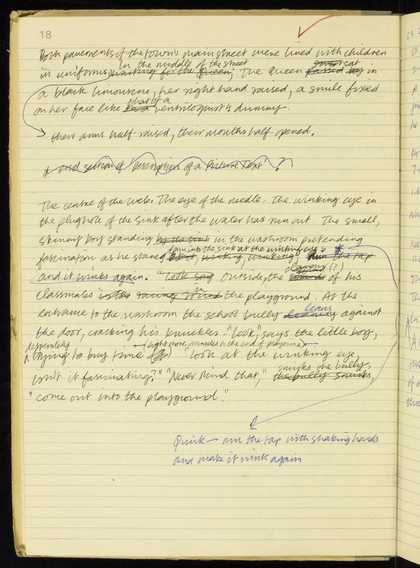 18
Both pavements of the town's main street were lined with children
in the middle of the street
in uniforms waiting for the Queen. The Queen passed by in
a black limousine, her right hand raised, a smile fixed
that of a
on her face like ventriloquist's dummy.
their arms half-raised, their mouths half-opened.
2nd section of description of a Picture Text?
The centre of the web. The eye of the needle. The winking eye in
the plughole of the sink after the water has run out. The small,
skinny boy standing by the sink in the washroom pretending
down into the sink at the winking eye
fascination as he stared the tap
and it winks again. "Look Outside, the of his
classmates the playground. At the
entrance to the washroom the school bully leans against
the door, cracking his knuckles. "Look" says the little boy,
desperately
trying to buy time "Look at the winking eye,
sniffs the bully,
isn't it fascinating?" "Never mind that," the bully
"come out into the playground."
Quick — run the tap with shaking hands
and make it wink again